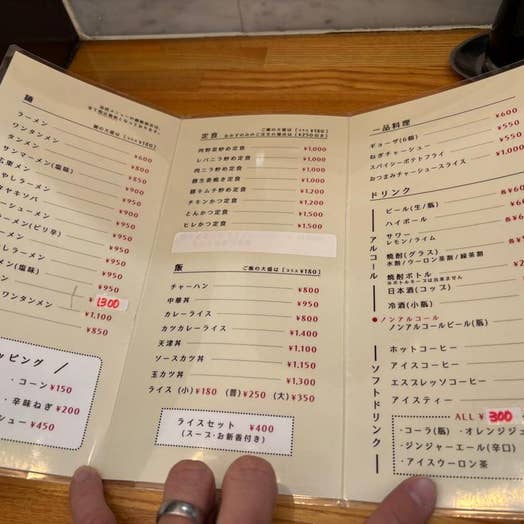 麺
麺の大盛は【プラス¥180】
ラーメン ¥600
ワンタンメン ¥800
タンメン ¥850
サンマーメン(塩味) ¥950
広東メン ¥950
やしラーメン ¥950
タヤキソバ ¥950
ーシューメン ¥950
ーメン(ピリ辛) ¥950
ーメン ¥950
しラーメン ¥950
ーメン(塩味) ¥950
ン ¥1300
ワンタンメン ¥1,100
¥850
ッピング
・コーン ¥150
・辛味ねぎ ¥200
シュー ¥450
定食
ご飯の大盛は【プラス¥180】
おかずのみのご注文の場合は【¥250引き】
肉野菜炒め定食 ¥1,000
レバニラ炒め定食 ¥1,000
肉ニラ炒め定食 ¥1,000
豚生姜焼き定食 ¥1,200
豚キムチ炒め定食 ¥1,200
チキンかつ定食 ¥1,100
とんかつ定食 ¥1,500
ヒレかつ定食 ¥1,500
飯
ご飯の大盛は【プラス¥180】
チャーハン ¥800
中華丼 ¥950
カレーライス ¥800
カツカレーライス ¥1,400
天津丼 ¥1,100
ソースカツ丼 ¥1,150
玉カツ丼 ¥1,300
ライス (小)¥180 (普)¥250 (大)¥350
ライスセット ¥400
(スープ・お新香付き)
一品料理
ギョーザ(6個) ¥600
ねぎチャーシュー ¥550
スパイシーポテトフライ ¥550
おつまみチャーシュースライス ¥1,000
ドリンク
アルコール
ビール(生/瓶) 各¥60
ハイボール
サワー
レモン/ライム
焼酎(グラス)
水割/ウーロン茶割/緑茶割
焼酎ボトル
※ボトルキープは出来ません
日本酒(コップ)
冷酒(小瓶)
●ノンアルコール
ノンアルコールビール(瓶)
ソフトドリンク
ホットコーヒー
アイスコーヒー
エスプレッソコーヒー
アイスティー
ALL ¥300
・コーラ(瓶) ・オレンジジュ
・ジンジャーエール(辛口)
・アイスウーロン茶